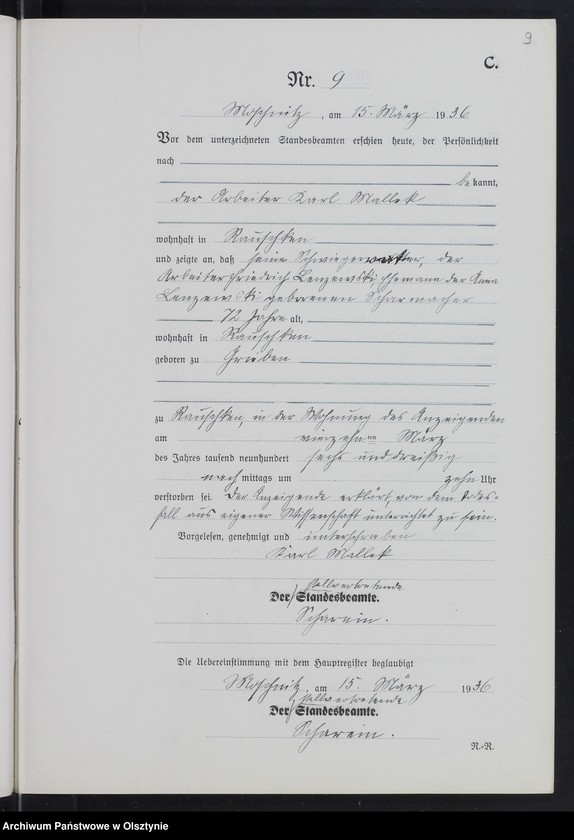 9
C.
Nr. 9
Moschnitz, am 15. März 1936
Vor dem unterzeichneten Standesbeamten erschien heute, der Persönlichkeit
nach
be kannt,
der Arbeiter Karl Mallek
wohnhaft in Rauschken
und zeigte an, daß seine Schwiegervater, der
Arbeiter Friedrich Lenzewski, Ehemann der Anna
Lenzewski geborenen Scharmacher
72 Jahre alt,
wohnhaft in Rauschken
geboren zu Grieben
zu Rauschken, in der Wohnung des Anzeigenden
am vierzehnten März
des Jahres tausend neunhundert sechs und dreißig
nach mittags um zehn Uhr
verstorben sei. Der Anzeigende erklärt, von dem Todes-
fall aus eigener Wissenschaft unterrichtet zu sein.
Vorgelesen, genehmigt und unterschrieben
Karl Mallek
stellvertretende
Der Standesbeamte.
Scharein.
Die Uebereinstimmung mit dem Hauptregister beglaubigt
Moschnitz, am 15. März 1936
stellvertretende
Der Standesbeamte.
Scharein.
R.-R.
Archiwum Państwowe w Olsztynie